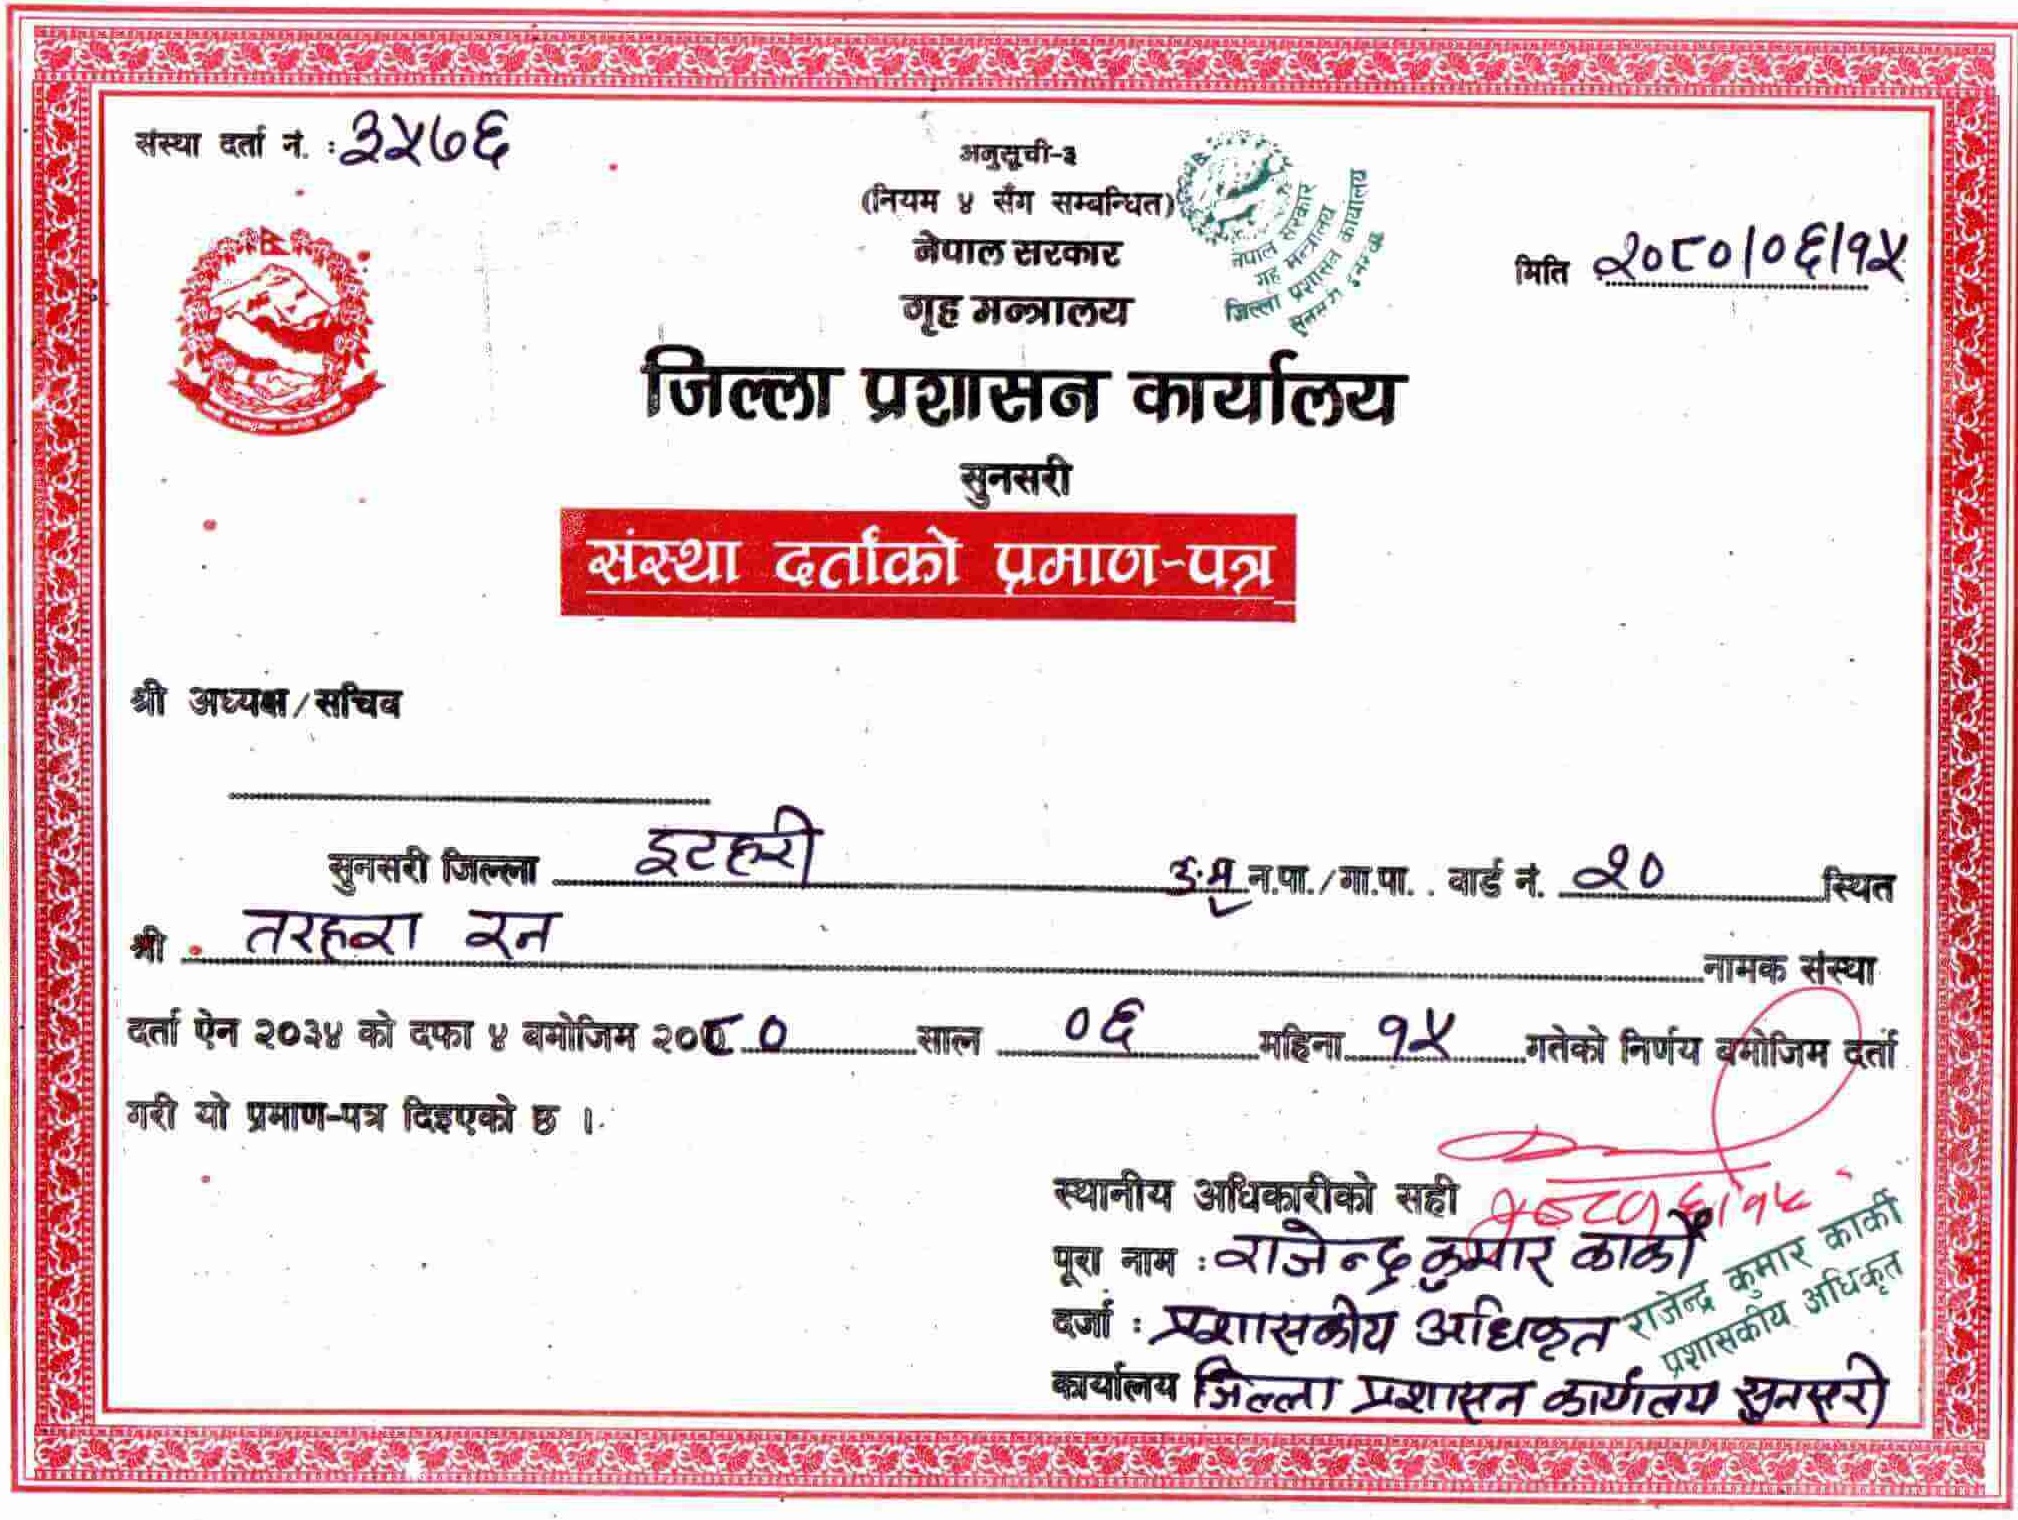 संस्था दर्ता नं. : ३५७६
अनुसूची-३
(नियम ४ सँग सम्बन्धित)
नेपाल सरकार
गृह मन्त्रालय
नेपाल सरकार
गृह मन्त्रालय
जिल्ला प्रशासन कार्यालय
मिति २०८०।०६।१५
जिल्ला प्रशासन कार्यालय
सुनसरी
संस्था दर्ताको प्रमाण-पत्र
श्री अध्यक्ष/सचिव
सुनसरी जिल्ला इटहरी उ.म.न.पा./गा.पा. . वार्ड नं. २० स्थित
श्री तरहरा रन नामक संस्था
दर्ता ऐन २०३४ को दफा ४ बमोजिम २०८० साल ०६ महिना १५ गतेको निर्णय बमोजिम दर्ता
गरी यो प्रमाण-पत्र दिइएको छ ।
स्थानीय अधिकारीको सही
पूरा नाम : राजेन्द्र कुमार कार्की
दर्जा : प्रशासकीय अधिकृत
राजेन्द्र कुमार कार्की
प्रशासकीय अधिकृत
कार्यालय जिल्ला प्रशासन कार्यालय सुनसरी